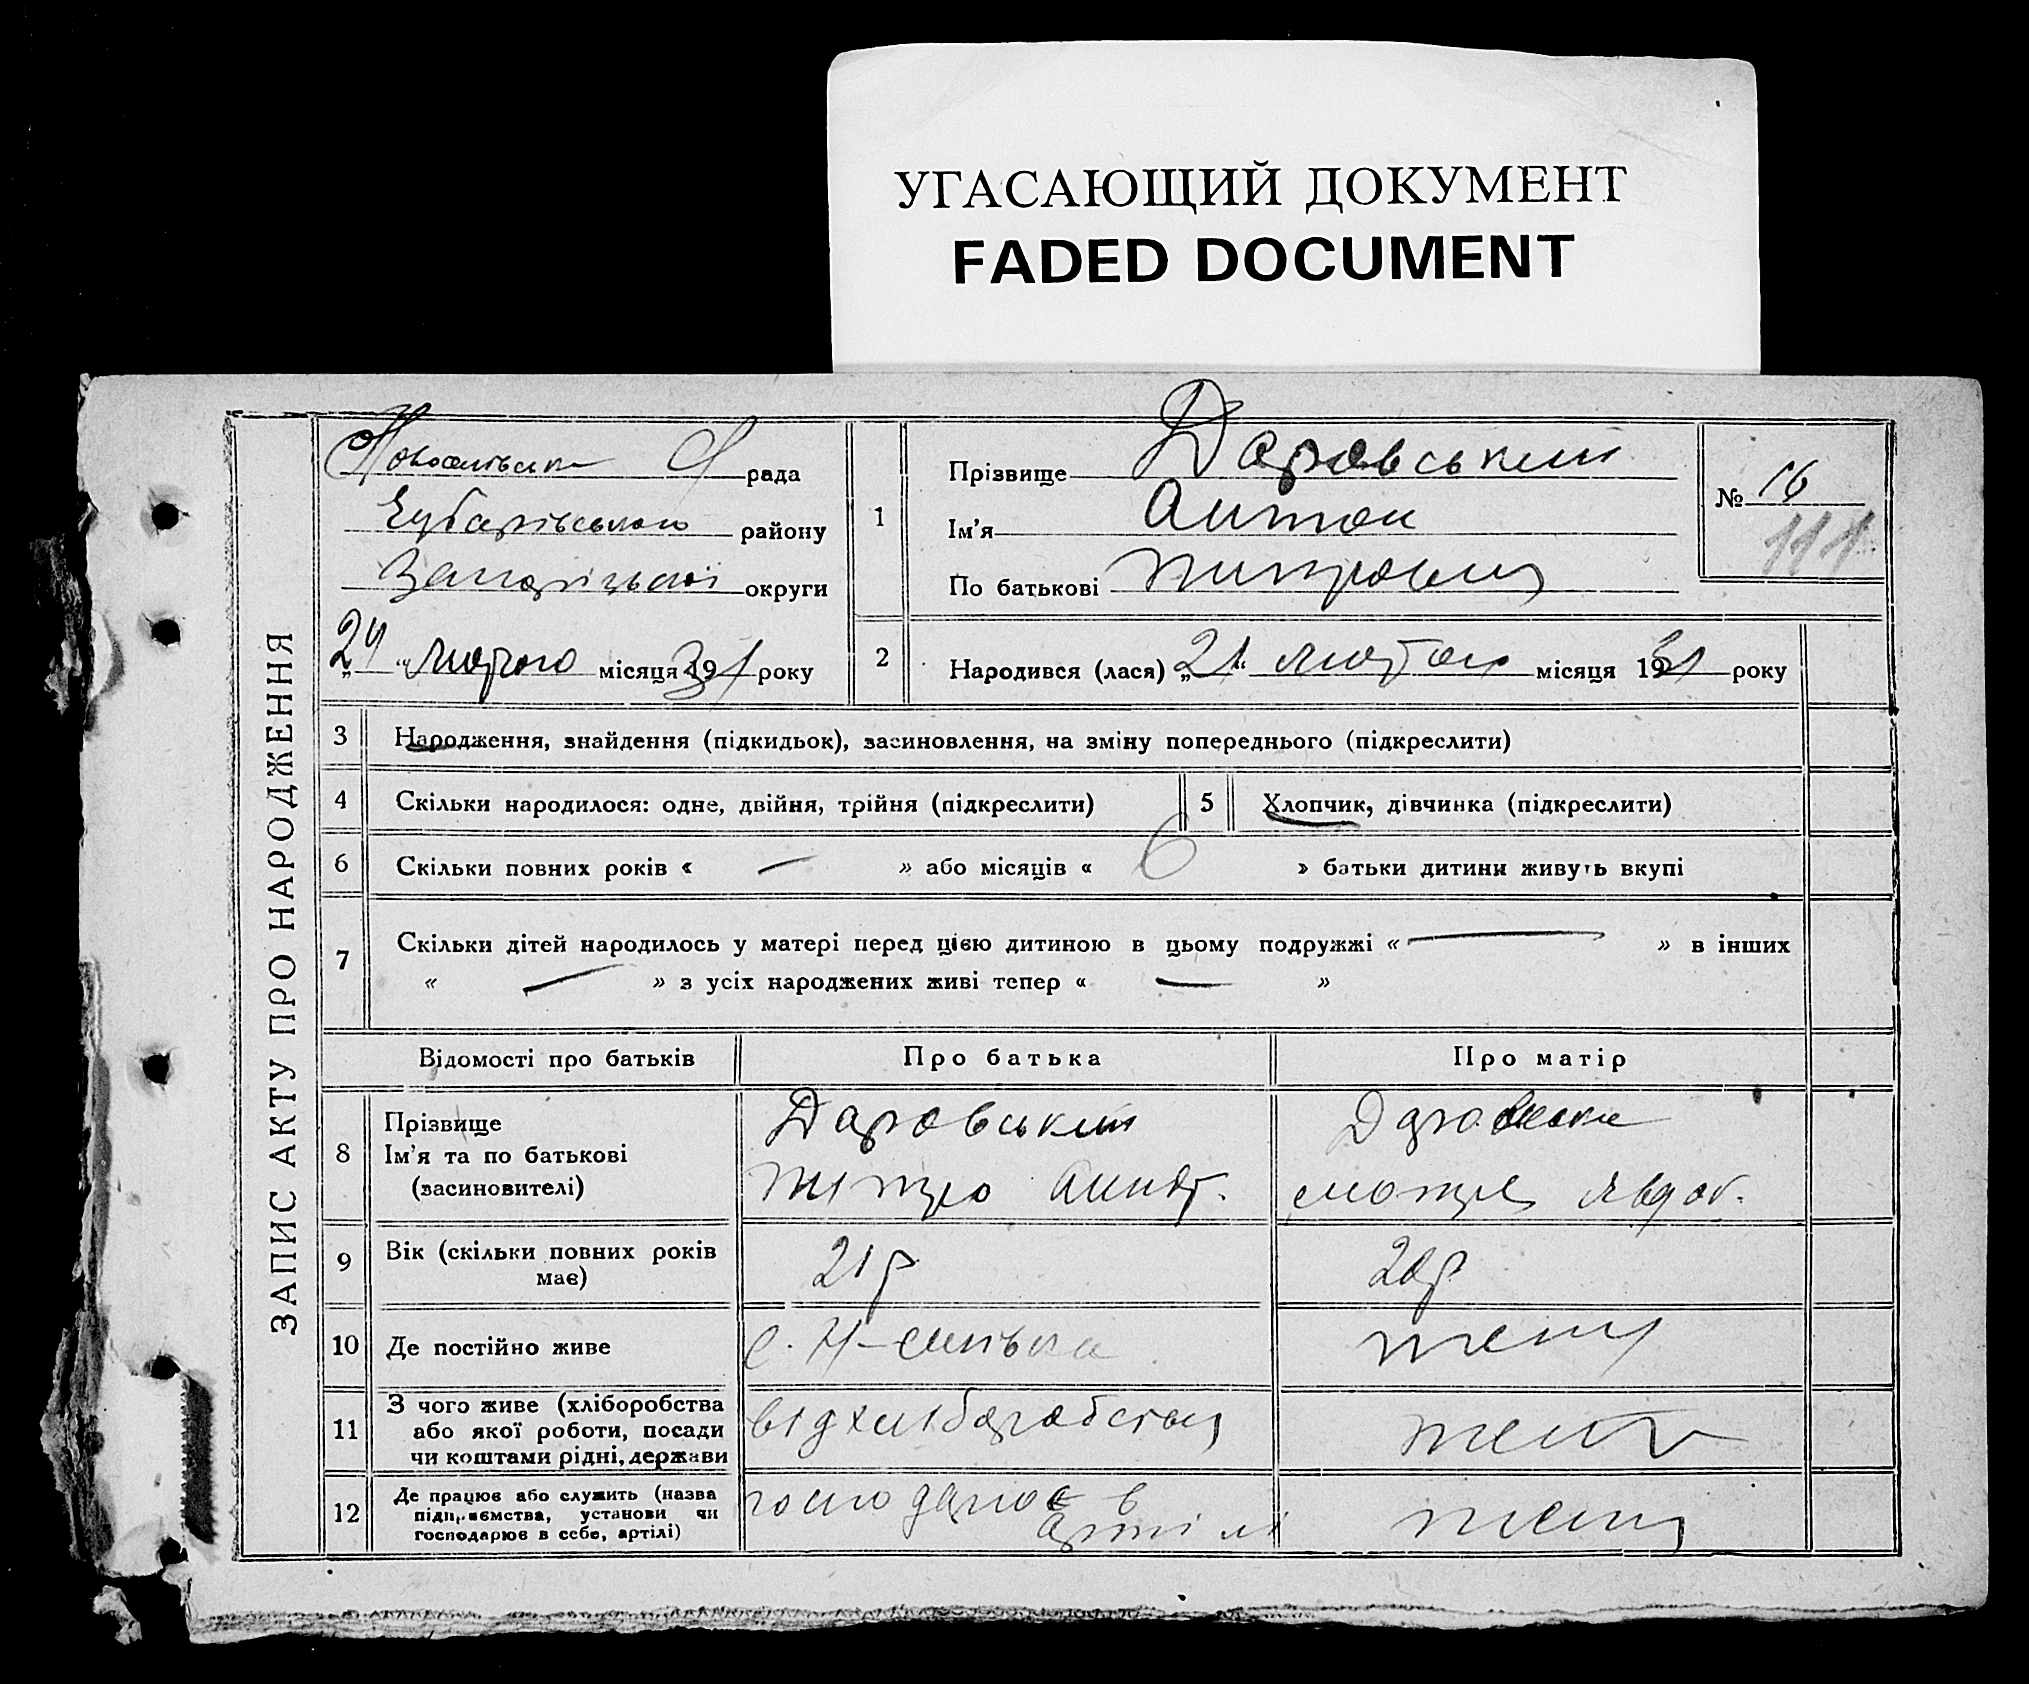 УГАСАЮЩИЙ ДОКУМЕНТ
FADED DOCUMENT
ЗАПИС АКТУ ПРО НАРОДЖЕННЯ
рада
району
округи
24 лютого місяця 1931 року
1
Прізвище Даровський
Ім'я Антон
По батькові
№ 16
111
2
Народився (лася) „21" лютого місяця 1931 року
3
Народження, знайдення (підкидьок), засиновлення, на зміну попереднього (підкреслити)
4
Скільки народилося: одне, двійня, трійня (підкреслити)
5
Хлопчик, дівчинка (підкреслити)
6
Скільки повних років « — » або місяців « 6 » батьки дитини живуть вкупі
7
Скільки дітей народилось у матері перед цією дитиною в цьому подружжі « — » в інших
« — » з усіх народжених живі тепер « — »
Відомості про батьків
Про батька
Про матір
8
Прізвище
Ім'я та по батькові
(засиновителі)
Даровський
Даровська
9
Вік (скільки повних років
має)
21 р
20 р
10
Де постійно живе
с.
11
З чого живе (хліборобства
або якої роботи, посади
чи коштами рідні, держави
12
Де працює або служить (назва
підприємства, установи чи
господарює в себе, артілі)
в
артілі